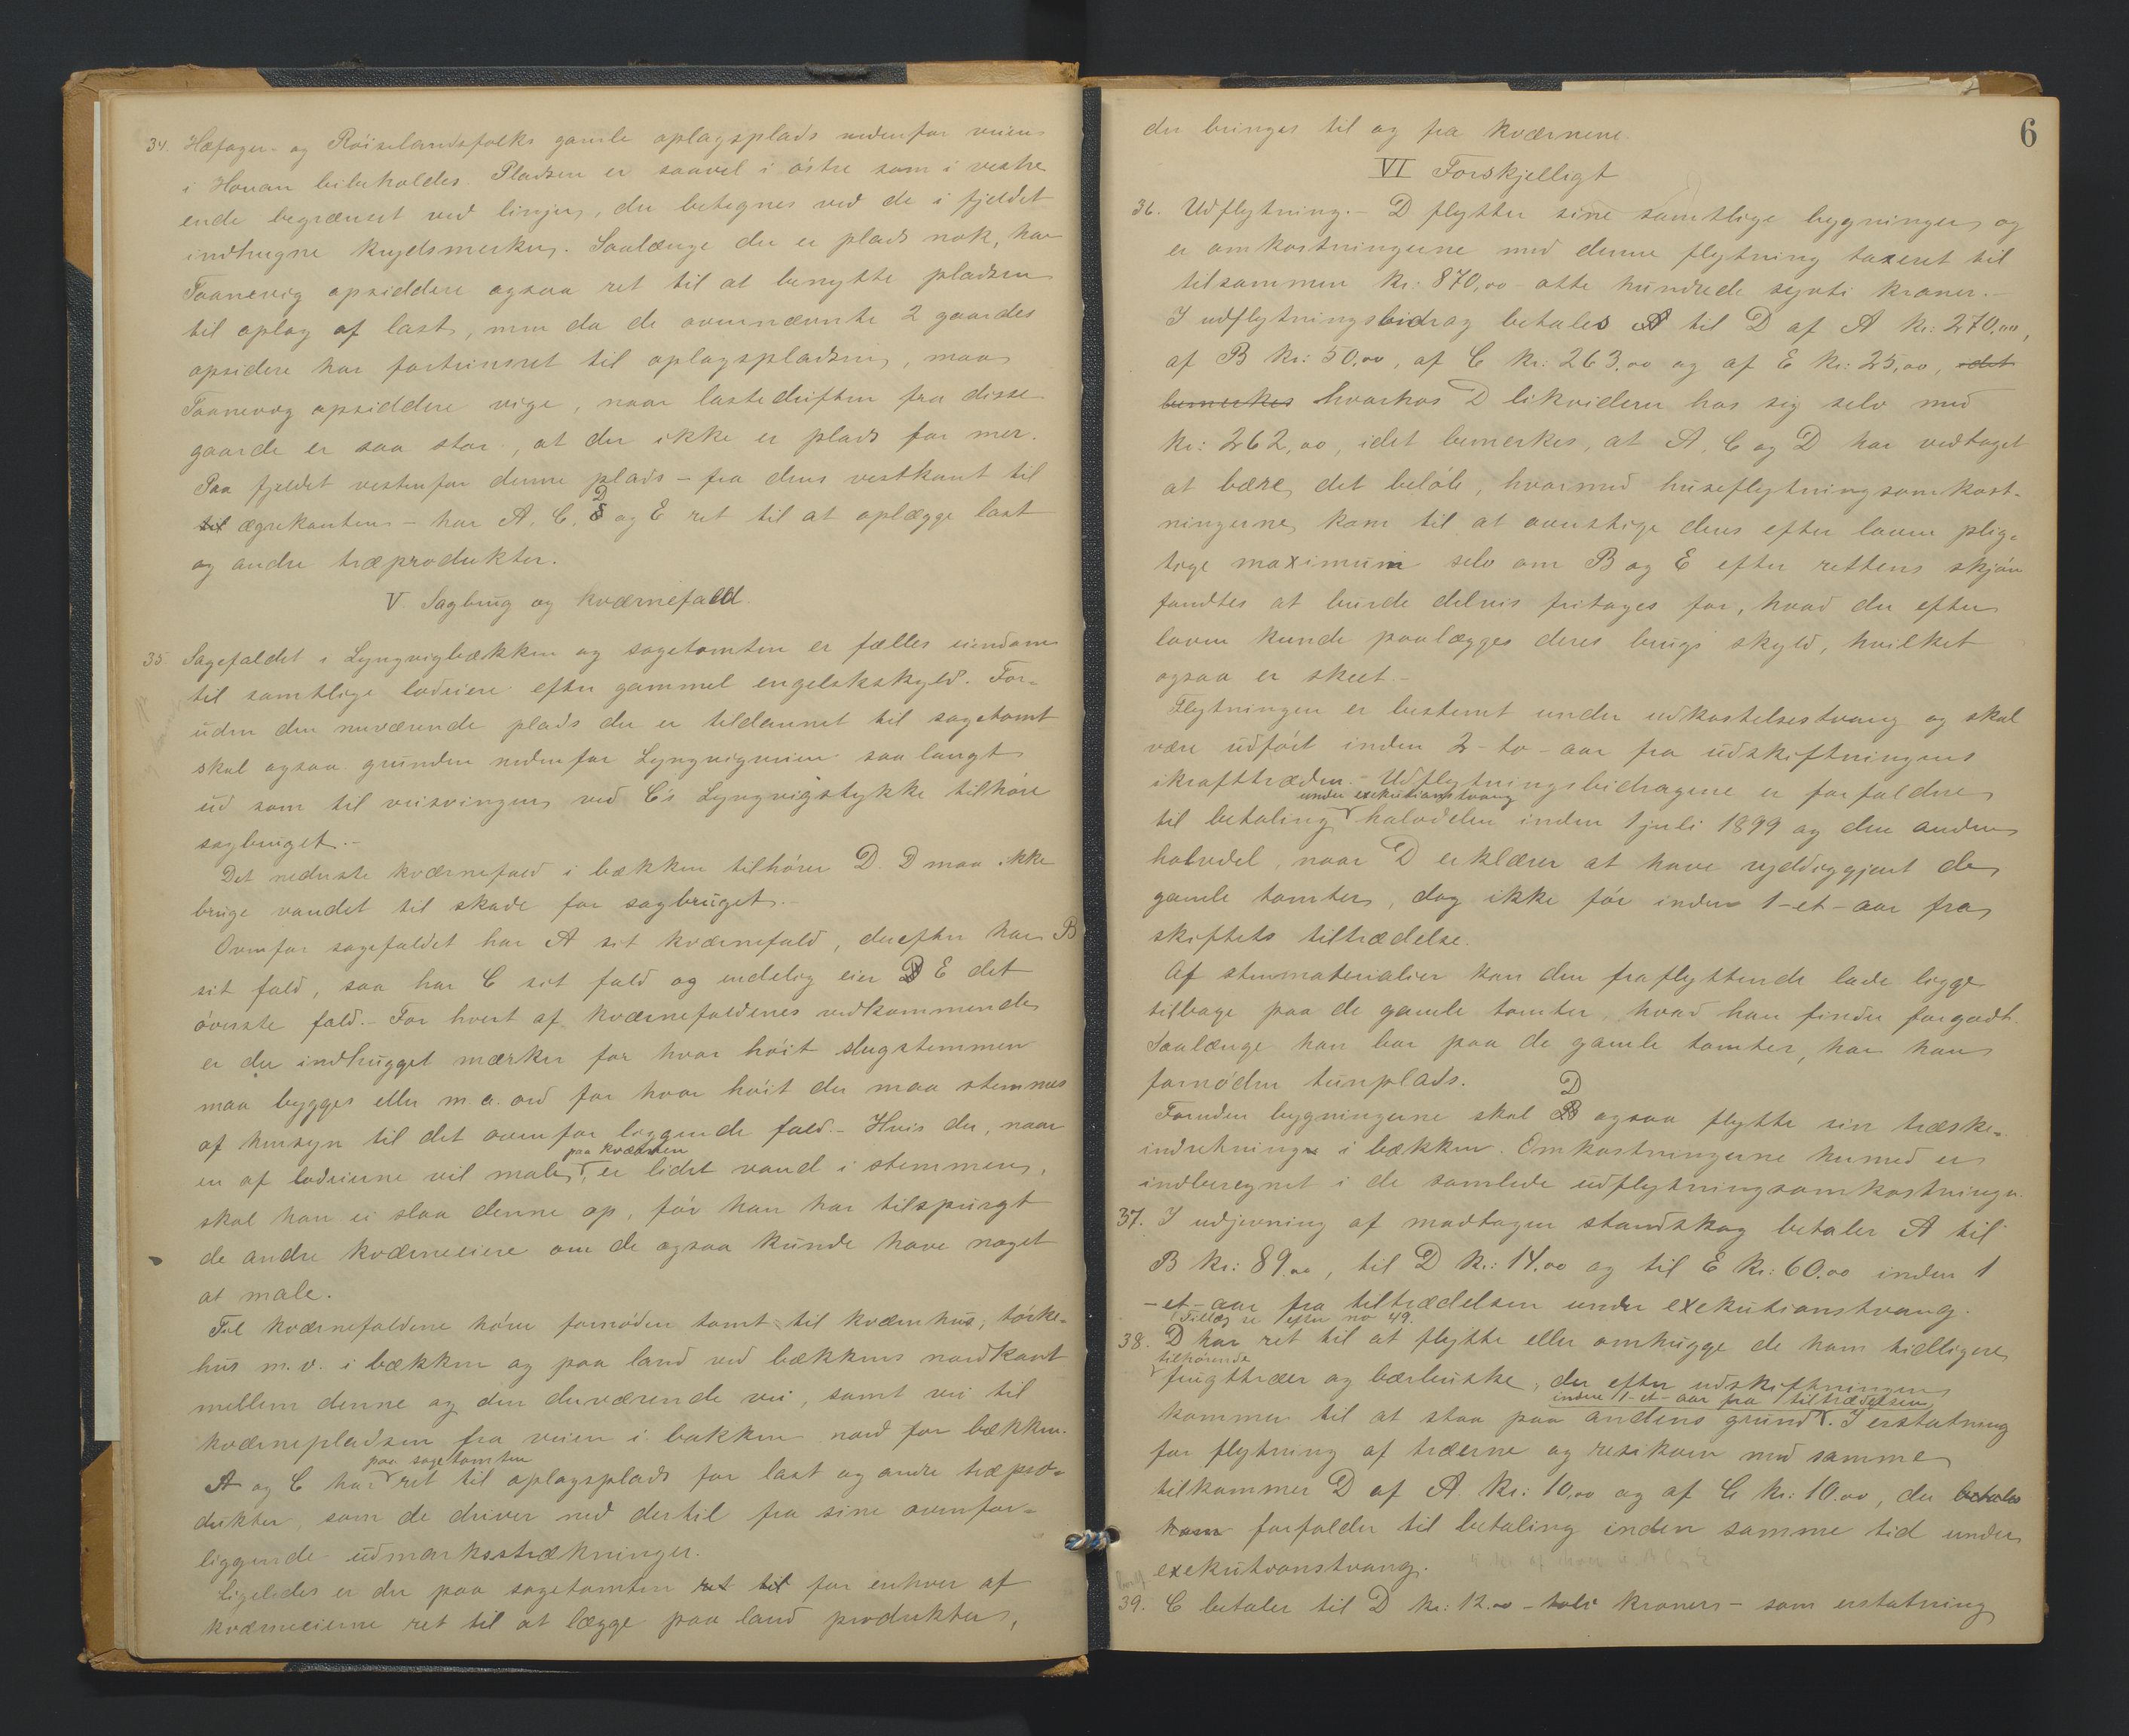 34. Hæfager- og Röiselandsfolks gamle oplagsplads nedenfor veien
i Hovan bibeholdes. Pladsen er saavel i östre som i vestre
ende begrænset ved linjer, der betegnes ved de i fjeldet
indhugne krydsmerker. Saalænge der er plads nok, har
Taanevig opsiddere ogsaa ret til at benytte pladsen
til oplag af last, men da de ovennævnte 2 gaardes
opsidere har fortrinsret til oplagspladsen, maa
Taanevig opsiddere vige, naar lastedriften fra disse
gaarde er saa stor, at der ikke er plads for mer.
Paa fjeldet vestenfor denne plads - fra dens vestkant til
til ægrekanten - har A, C, D og E ret til at oplægge last
og andre træprodukter.
V. Sagbrug og kværnefald.
35 Sagefaldet i Lyngvigbækken og sagetomten er fælles eiendom
til samtlige lodeiere efter gammel engelskskyld. For-
uden den nuværende plads der er tildannet til sagetomt
skal ogsaa grunden nedenfor Lyngvigveien saa langt
ud som til veisvingen ved C's Lyngvigstykke tilhöre
sagbruget.-
Det nederste kværnefald i bækken tilhörer D. D maa ikke
bruge vandet til skade for sagbruget.-
Ovenfor sagefaldet har A sit kværnefald, derefter har B
sit fald, saa har C sit fald og endelig eier E det
överste fald.- For hvert af kværnefaldenes vedkommende
er der indhugget mærker for hvor höit slugstemmen
maa bygges eller m. a. ord for hvor höit der maa stemmes
af hensyn til det ovenfor liggende fald.- Hvis der, naar
paa kværnen
en af lodeierne vil male, er lidet vand i stemmen,
skal han ei slaa denne op, för han har tilspurgt
de andre kværneeiere om de ogsaa kunde have noget
at male.
Til kværnefaldene hörer fornöden tomt til kværnhus, törke-
hus m. v. i bækken og paa land ved bækkens nordkant
mellem denne og den derværende vei, samt vei til
kværnepladsen fra veien i bakken nord for bækken.
paa sagetomten
A og C har ret til oplagsplads for last og andre træpro-
dukter, som de driver ned dertil fra sine ovenfor-
liggende udmarksstrækninger.
Ligeledes er der paa sagetomten ret til for enhver af
kværneeierne ret til at lægge paa land produkter,
6
der bringes til og fra kværnene.
VI Forskjelligt
36. Udflytning.- D flytter sine samtlige bygninger og
er omkostningerne med denne flytning taxeret til
tilsammen kr: 870,00 - otte hundrede sytti kroner.-
I udflytningsbidrag betales til D af A kr: 270,00,
af B kr: 50,00, af C kr: 263,00 og af E kr: 25,00, idet
bemerkes hvorhos D likviderer hos sig selv med
kr: 262,00, idet bemerkes, at A, C og D har vedtaget
at bære det belöb, hvormed huseflytningsomkost-
ningerne kom til at overstige dens efter loven plig-
tige maximum selv om B og E efter rettens skjön
fandtes at burde delvis fritages for, hvad der efter
loven kunde paalægges deres brugs skyld, hvilket
ogsaa er skeet.-
Flytningen er bestemt under udkastelsestvang og skal
være udfört inden 2 - to - aar fra udskiftningens
ikrafttræden.- Udflytningsbidragene er forfaldne
under exekutionstvang
til betaling halvdelen inden 1 juli 1899 og den anden
halvdel, naar D erklærer at have ryddiggjort de
gamle tomter, dog ikke för inden 1 - et - aar fra
skiftets tiltrædelse.
Af stenmaterialier kan den fraflyttende lade ligge
tilbage paa de gamle tomter, hvad han finder forgodt.
Saalænge han bor paa de gamle tomter, har han
fornöden tunplads.
Foruden bygningerne skal D ogsaa flytte sin træske-
indretning i bækken. Omkostningerne hermed er
indberegnet i de samlede udflytningsomkostninger.
37. I udjevning af modtagen standskog betaler A til
B kr: 89,00, til D kr: 14,00 og til E kr: 60,00 inden 1
- et - aar fra tiltrædelsen under exekutionstvang.
(Tillæg se efter no 49.
38. D har ret til at flytte eller omhugge de ham tidligere
tilhörende
frugttræer og bærbuske, der efter udskiftningen
inden 1 - et - aar fra tiltrædelsen
kommer til at staa paa andens grund. I erstatning
for flytning af træerne og resikoen med samme
tilkommer D af A kr: 10,00 og af C kr: 10,00, der betales
ham forfalder til betaling inden samme tid under
exekutionstvang.
39. C betaler til D kr: 12,00 - tolv kroner - som erstatning